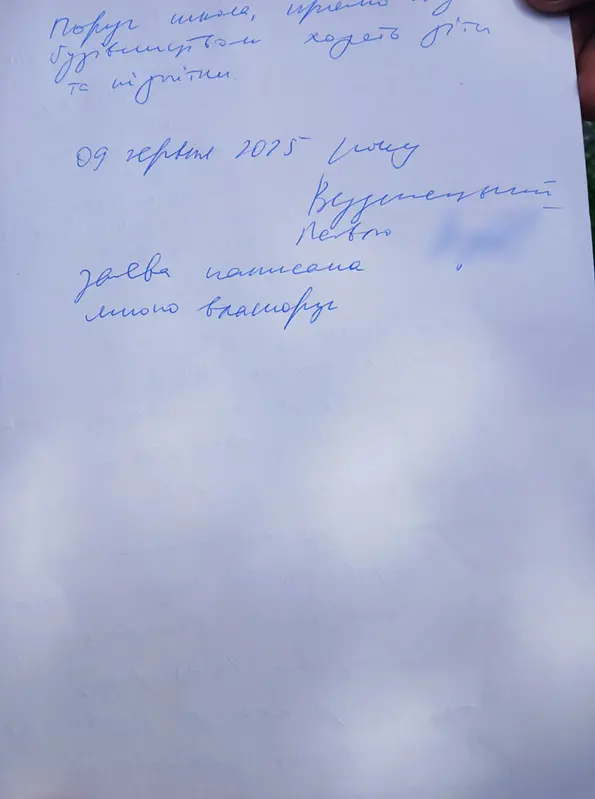 Поруч школа, прямо
будівництвом ходять діти
та підлітки.
09 червня 2025 року
Павло
заява написана
мною власноруч